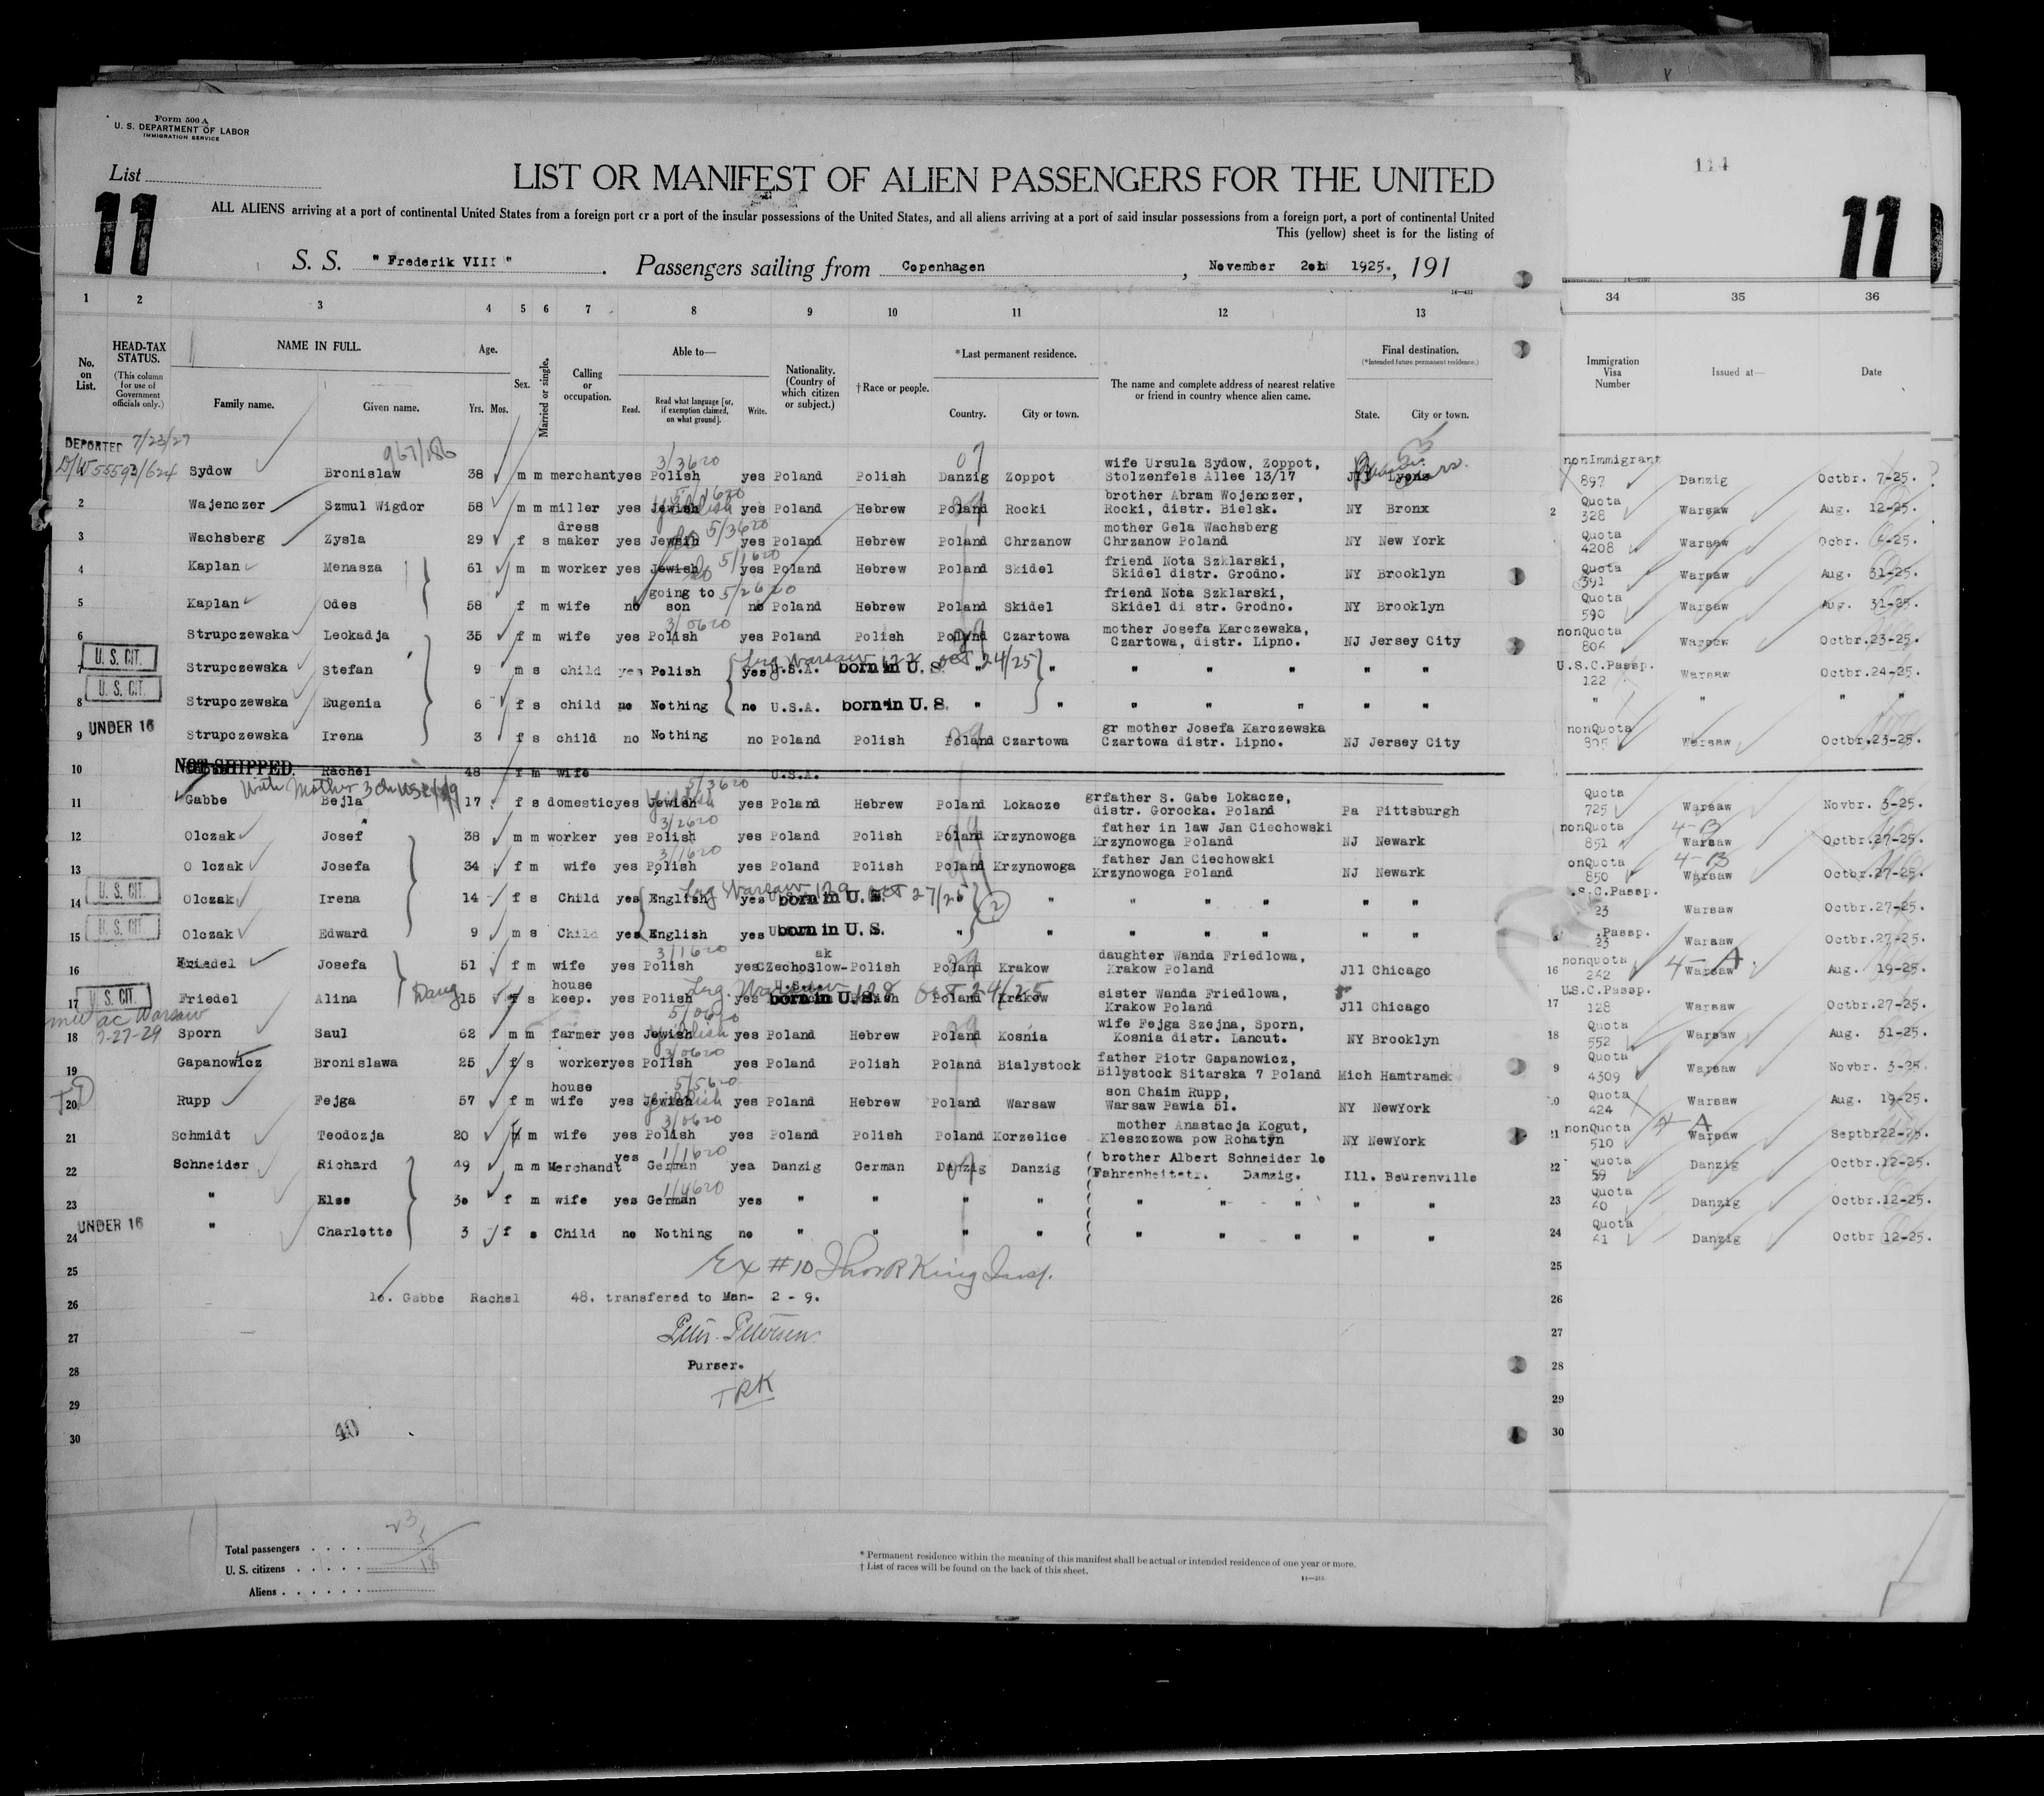 Form 500 A
U. S. DEPARTMENT OF LABOR
IMMIGRATION SERVICE
List
11
114
11
LIST OR MANIFEST OF ALIEN PASSENGERS FOR THE UNITED
ALL ALIENS arriving at a port of continental United States from a foreign port or a port of the insular possessions of the United States, and all aliens arriving at a port of said insular possessions from a foreign port, a port of continental United
This (yellow) sheet is for the listing of
S. S. " Frederik VIII " . Passengers sailing from Copenhagen , November 1925. , 191
1 2 3 4 5 6 7 8 9 10 11 12 13 34 35 36
No. on List.
HEAD-TAX STATUS.
(This column for use of Government officials only.)
NAME IN FULL.
Family name. Given name.
Age.
Yrs. Mos.
Sex.
Married or single.
Calling or occupation.
Able to—
Read. Read what language [or, if exemption claimed, on what ground]. Write.
Nationality. (Country of which citizen or subject.)
†Race or people.
*Last permanent residence.
Country. City or town.
The name and complete address of nearest relative or friend in country whence alien came.
Final destination.
(*Intended future permanent residence.)
State. City or town.
Immigration Visa Number
Issued at—
Date
DEPORTED 7/23/27
967/186
3/3620
Sydow Bronislaw 38 m m merchant yes Polish yes Poland Polish Danzig Zoppot wife Ursula Sydow, Zoppot, Stolzenfels Allee 13/17 Lyons nonImmigrant 897 Danzig Octbr. 7-25.
2 Wajenczer Szmul Wigdor 58 m m miller yes Jewish yes Poland Hebrew Poland Rocki brother Abram Wojenczer, Rocki, distr. Bielsk. NY Bronx 2 Quota 328 Warsaw Aug. 12-25.
3 Wachsberg Zysla 29 f s dress maker yes Jewsih 5/3620 yes Poland Hebrew Poland Chrzanow mother Gela Wachsberg Chrzanow Poland NY New York Quota 4208 Warsaw Ocbr. 6-25.
4 Kaplan Menasza 61 m m worker yes Jewish 5/1620 yes Poland Hebrew Poland Skidel friend Nota Szklarski, Skidel distr. Grodno. NY Brooklyn Quota 391 Warsaw Aug. 31-25.
5 Kaplan Odes 58 f m wife no going to son 5/2620 no Poland Hebrew Poland Skidel friend Nota Szklarski, Skidel di str. Grodno. NY Brooklyn Quota 590 Warsaw Aug. 31-25.
3/0620
6 Strupczewska Leokadja 35 f m wife yes Polish yes Poland Polish Poland Czartowa mother Josefa Karczewska, Czartowa, distr. Lipno. NJ Jersey City nonQuota 806 Warsaw Octbr.23-25.
U. S. CIT.
7 Strupczewska Stefan 9 m s child yes Polish yes U.S.A. born in U. S. " " " " " " " U.S.C.Passp. 122 Warsaw Octbr.24-25.
Warsaw 122 Oct 24/25
U. S. CIT.
8 Strupczewska Eugenia 6 f s child no Nothing no U.S.A. born in U. S. " " " " " " " " " " "
UNDER 16
9 Strupczewska Irena 3 f s child no Nothing no Poland Polish Poland Czartowa gr mother Josefa Karczewska Czartowa distr. Lipno. NJ Jersey City nonQuota 805 Warsaw Octbr.23-25.
10 NOT SHIPPED. Rachel 48 f m wife U.S.A.
With Mother
5/3620
11 Gabbe Bejla 17 f s domestic yes Jewish yes Poland Hebrew Poland Lokacze grfather S. Gabe Lokacze, distr. Gorocka. Poland Pa Pittsburgh Quota 725 Warsaw Novbr. 3-25.
3/2620
12 Olczak Josef 38 m m worker yes Polish yes Poland Polish Poland Krzynowoga father in law Jan Ciechowski Krzynowoga Poland NJ Newark nonQuota 851 4-B Warsaw Octbr.27-25.
3/1620
13 O lczak Josefa 34 f m wife yes Polish yes Poland Polish Poland Krzynowoga father Jan Ciechowski Krzynowoga Poland NJ Newark onQuota 850 4-B Warsaw Octbr.27-25.
U. S. CIT.
14 Olczak Irena 14 f s Child yes English yes born in U. S. " " " " " " .S.C.Passp. 23 Warsaw Octbr.27-25.
Warsaw 129 Oct 27/25 2
U. S. CIT.
15 Olczak Edward 9 m s Child yes English yes born in U. S. " " " " " " " .Passp. 23 Warsaw Octbr.27-25.
3/1620
16 Friedel Josefa 51 f m wife yes Polish yes Czechoslow-ak Polish Poland Krakow daughter Wanda Friedlowa, Krakow Poland Jll Chicago 16 nonquota 262 4-A Warsaw Aug. 19-25.
U. S. CIT.
17 Friedel Alina Daug 15 f s house keep. yes Polish yes born in U. S. Polish Poland Krakow sister Wanda Friedlowa, Krakow Poland Jll Chicago 17 U.S.C.Passp. 128 Warsaw Octbr.27-25.
Warsaw 128 Oct 24/25
5/0620
18 Sporn Saul 62 m m farmer yes Jewish yes Poland Hebrew Poland Kosnia wife Fejga Szejna, Sporn, Kosnia distr. Lancut. NY Brooklyn 18 Quota 552 Warsaw Aug. 31-25.
3/0620
19 Gapanowicz Bronislawa 25 f s worker yes Polish yes Poland Polish Poland Bialystock father Piotr Gapanowicz, Bilystock Sitarska 7 Poland Mich Hamtramck 9 Quota 4309 Warsaw Novbr. 3-25.
5/5620
20 Rupp Fejga 57 f m house wife yes Jewish yes Poland Hebrew Poland Warsaw son Chaim Rupp, Warsaw Pawia 51. NY NewYork Quota 424 Warsaw Aug. 19-25.
3/0620
21 Schmidt Teodozja 20 f m wife yes Polish yes Poland Polish Poland Korzelice mother Anastacja Kogut, Kleszczowa pow Rohatyn NY NewYork nonQuota 510 4-A Warsaw Septbr22-25.
1/1620
22 Schneider Richard 49 m m Merchandt yes German yea Danzig German Danzig Danzig brother Albert Schneider 10 Fahrenheitstr. Damzig. Ill. Beurenville 22 Quota 59 Danzig Octbr.12-25.
1/4620
23 " Else 30 f m wife yes German yes " " " " " " " " " 23 Quota 60 Danzig Octbr.12-25.
UNDER 16
24 " Charlotte 3 f s Child no Nothing no " " " " " " " " " 24 Quota 61 Danzig Octbr 12-25.
25 25
Ex #10 Thos R King Insp.
26 10. Gabbe Rachel 48. transfered to Man- 2 - 9. 26
27 27
28 Purser. 28
TRK
29 29
30 30
40
Total passengers . . . . 23
U. S. citizens . . . . . 18
Aliens . . . . . .
* Permanent residence within the meaning of this manifest shall be actual or intended residence of one year or more.
† List of races will be found on the back of this sheet.